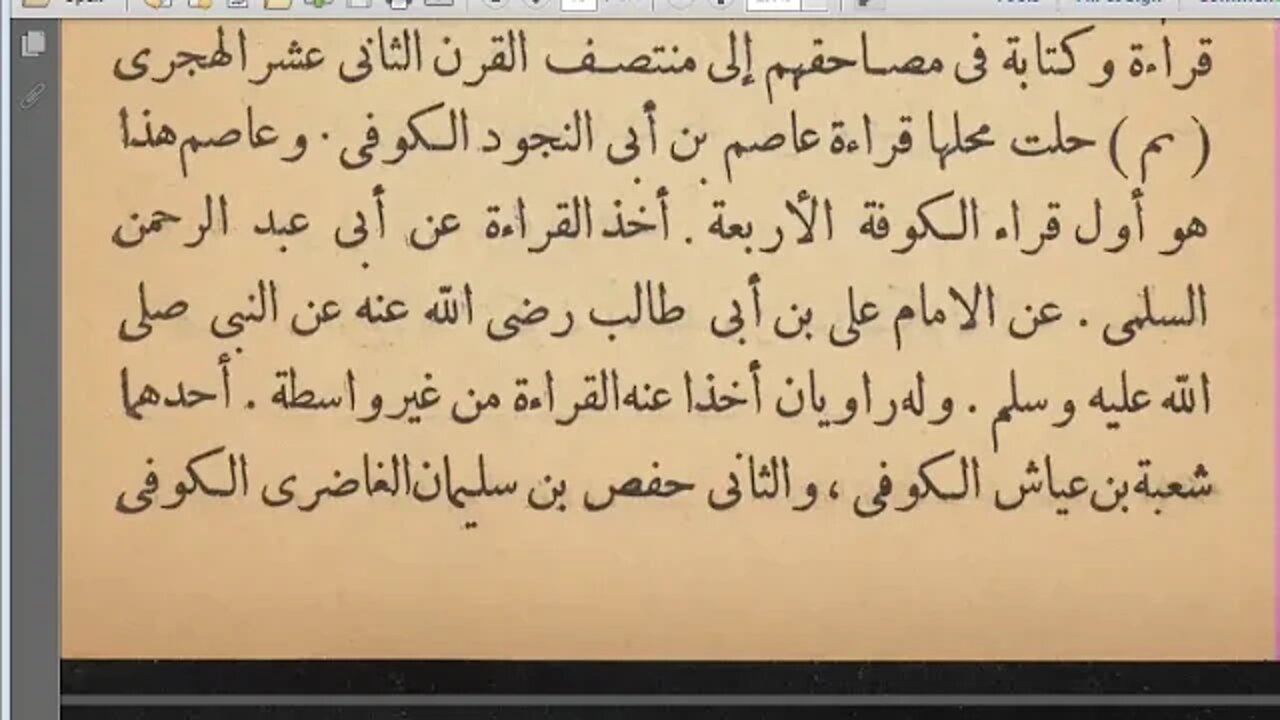 قراءة وكتابة فى مصاحفهم إلى منتصف القرن الثانى عشر الهجرى
( م ) حلت محلها قراءة عاصم بن أبى النجود الكوفى . وعاصم هذا
هو أول قراء الكوفة الأربعة . أخذ القراءة عن أبى عبد الرحمن
السلمى . عن الامام على بن أبى طالب رضى الله عنه عن النبى صلى
الله عليه وسلم . وله راويان أخذا عنه القراءة من غير واسطة . أحدهما
شعبة بن عياش الكوفى ، والثانى حفص بن سليمان الغاضرى الكوفى